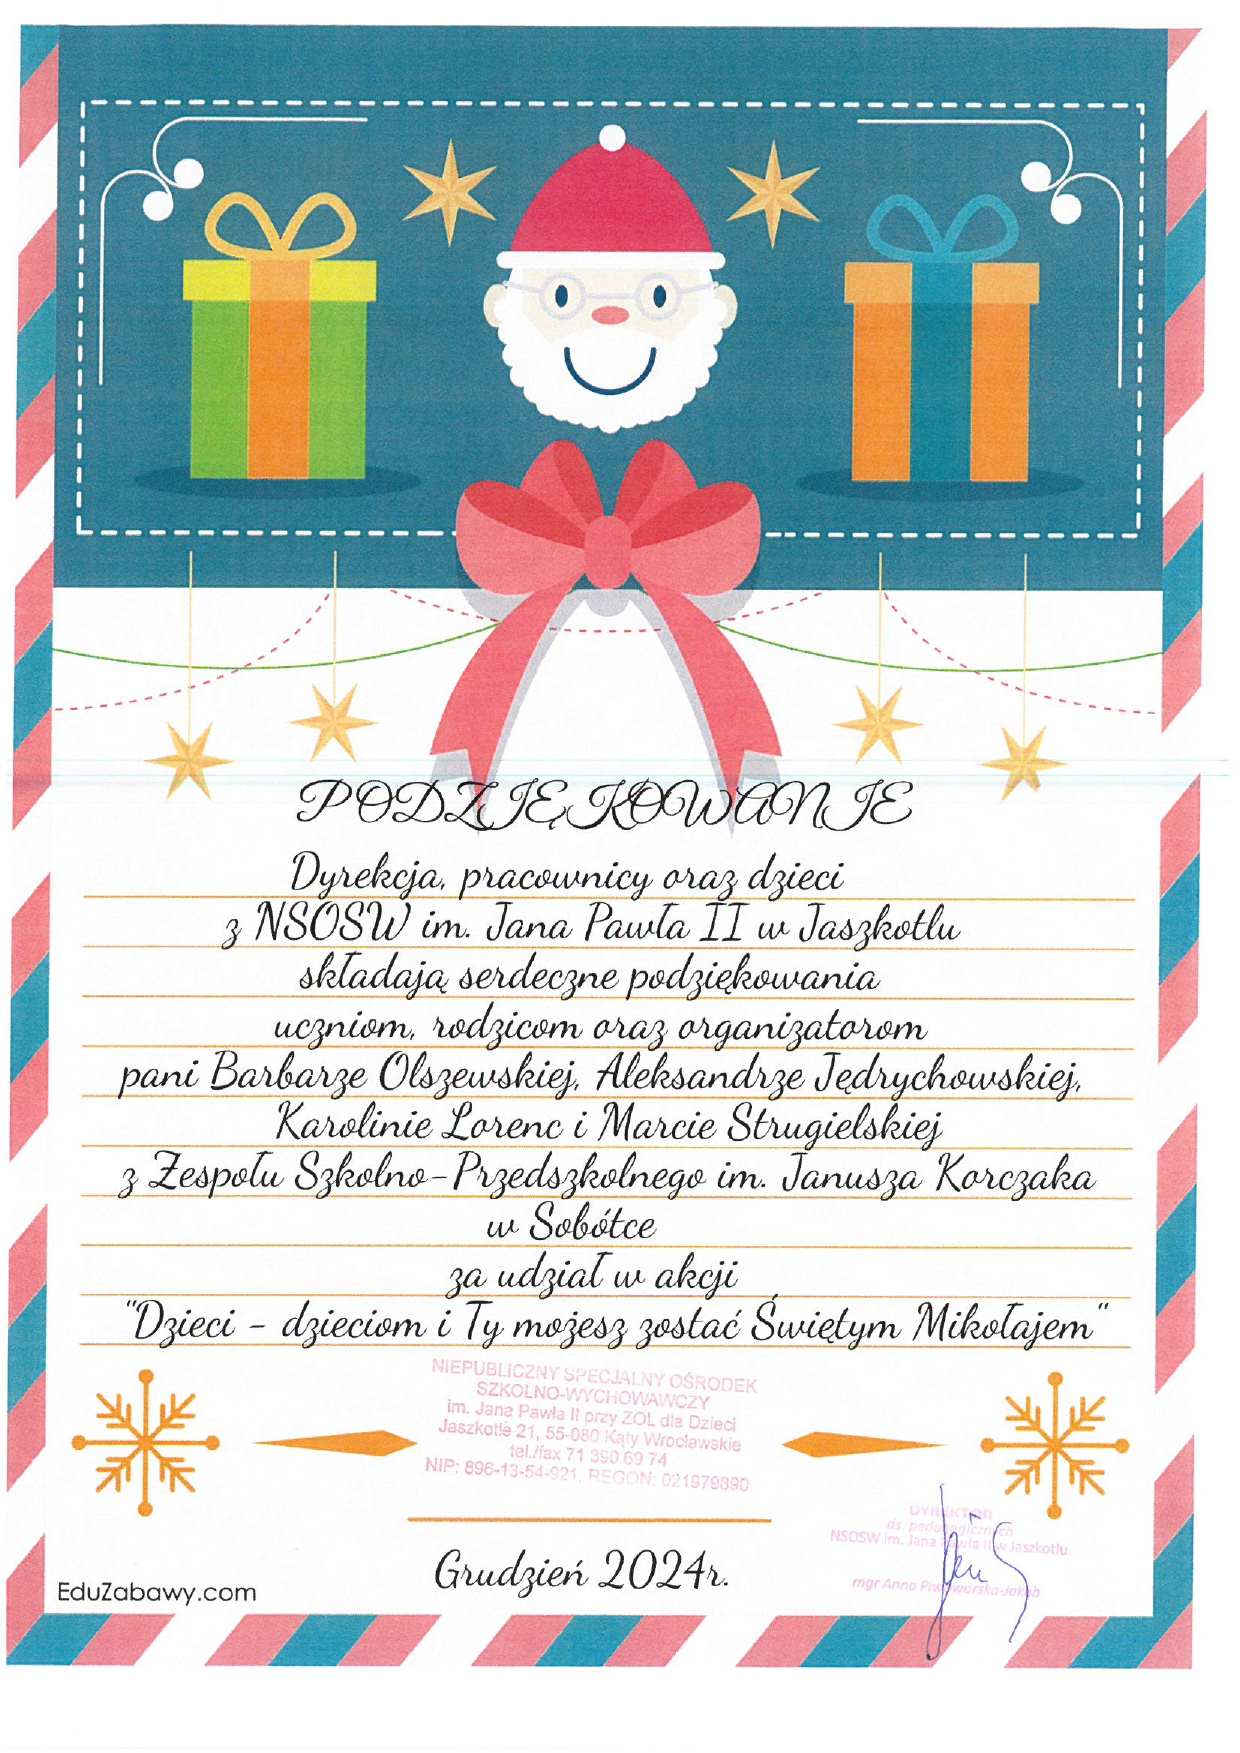 PODZIĘKOWANIE
Dyrekcja, pracownicy oraz dzieci
z NSOSW im. Jana Pawła II w Jaszkotlu
składają serdeczne podziękowania
uczniom, rodzicom oraz organizatorom
pani Barbarze Olszewskiej, Aleksandrze Jędrychowskiej,
Karolinie Lorenc i Marcie Strugielskiej
z Zespołu Szkolno-Przedszkolnego im. Janusza Korczaka
w Sobótce
za udział w akcji
"Dzieci - dzieciom i Ty możesz zostać Świętym Mikołajem"
NIEPUBLICZNY SPECJALNY OŚRODEK
SZKOLNO-WYCHOWAWCZY
im. Jana Pawła II przy ZOL dla Dzieci
Jaszkotle 21, 55-080 Kąty Wrocławskie
tel./fax 71 390 69 74
NIP: 896-13-54-921, REGON: 021979890
DYREKTOR
ds. pedagogicznych
NSOSW im. Jana Pawła II w Jaszkotlu
mgr Anna Piwoworska-Jakób
Grudzień 2024r.
EduZabawy.com